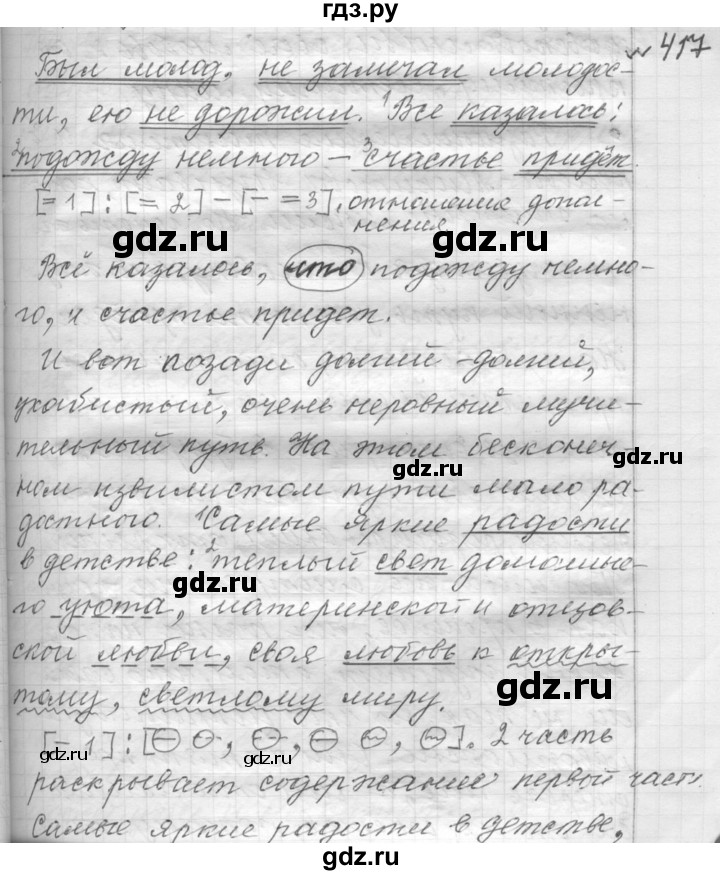 гдз.ру
№ 417
Был молод, не замечал молодос-
ти, ею не дорожил. ¹Все казалось:
²подожду немного – ³счастье придёт.
[= 1] : [= 2] – [– = 3], отношение допол-
нения
gdz.ru
gdz.ru
Всё казалось, что подожду немно-
го, и счастье придет.
И вот позади долгий-долгий,
ухабистый, очень неровный мучи-
тельный путь. На этом бесконеч-
gdz.ru
gdz.ru
ном извилистом пути мало ра-
достного. ¹Самые яркие радости
в детстве: ²теплый свет домашне-
gdz.ru
го уюта, материнской и отцов-
ской любви, своя любовь к откры-
тому, светлому миру.
gdz.ru
[– 1] : [ , , , , ]. 2 часть
gdz.ru
раскрывает содержание первой части.
Самые яркие радости в детстве,
gdz.ru
gdz.ru